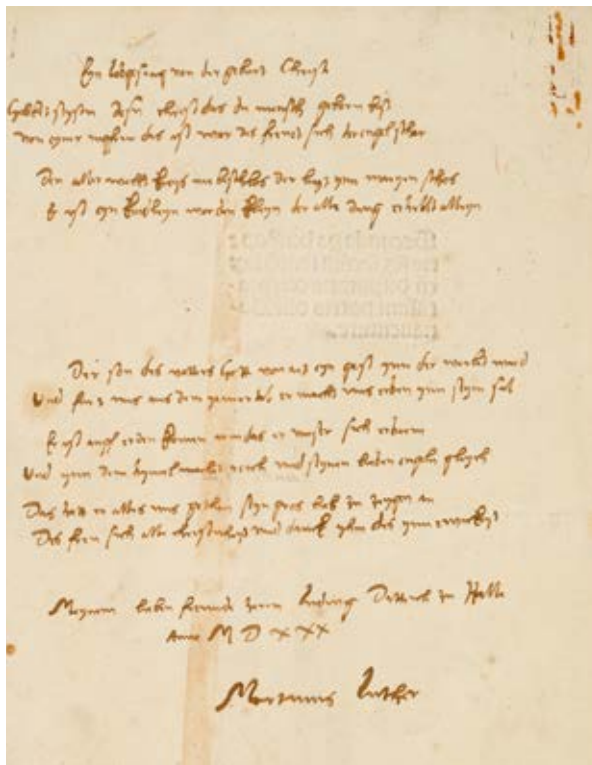 Eyn lobgesang von der geburt Christi
Gelobet seystu Jesu christ das du mensch geborn bist
von eyner das ist war des frewet sich der engel schar
Den aller wellt kreys nie beschlos der ligt ynn marien schos
Er ist eyn kindleyn worden kleyn der alle ding erhellt alleyn
Der son des vatters Gott von art eyn gast ynn der werlet ward
Und furt uns aus dem iamertal er macht uns erben ynn seym sal
Er ist auff erden komen arm das er unser sich erbarm
Und ynn dem hymel mache reich und seynen lieben engeln gleych
Das hat er alles uns gethan seyn gros lieb zu zeygen an
Des frew sich alle christenheyt und danck yhm des ynn ewickeyt
Meynem lieben freunde herrn Ludwig zu Halle
Anno M D XXX
Martinus Luther